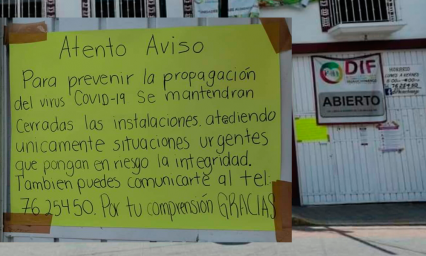 Atento Aviso
Para prevenir la propagación
del virus COVID-19 Se mantendran
Cerradas las instalaciones atediendo
unicamente situaciones urgentes
que pongan en riesgo la integridad.
Tambien puedes comunicarte al tel:
76 25450. Por tu comprensión GRACIAS
DIF
ABIERTO